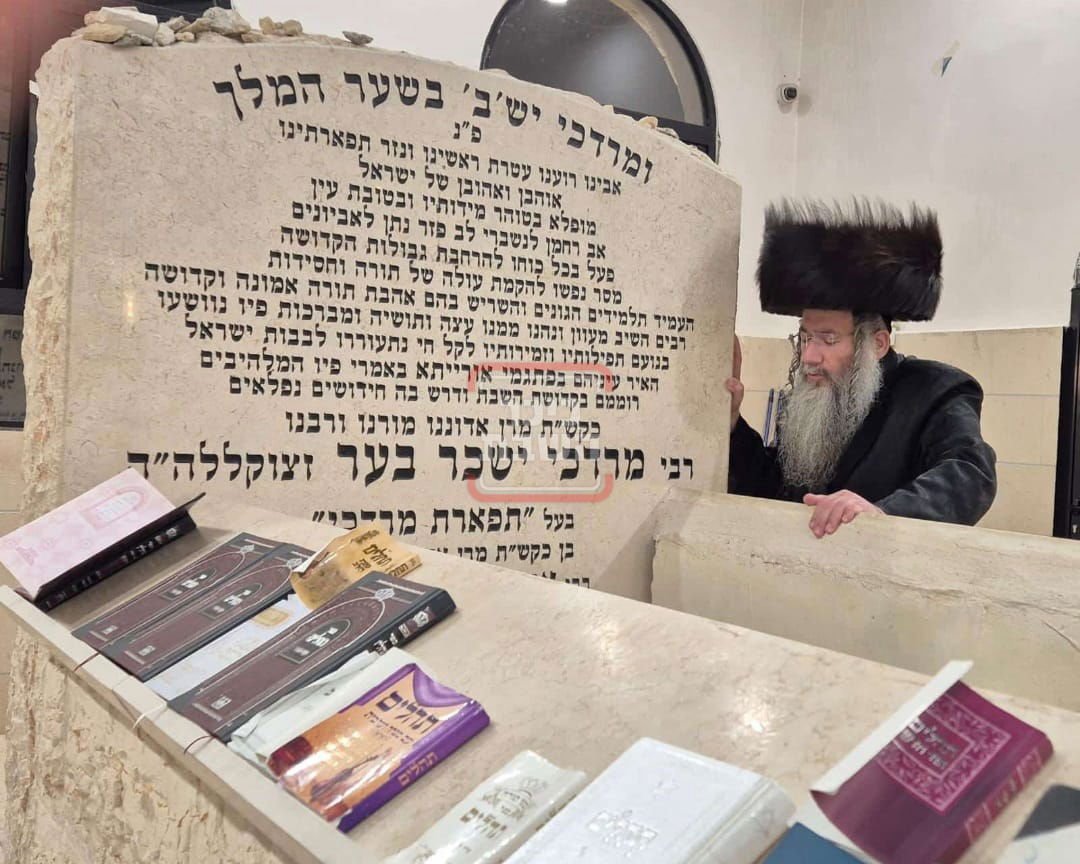 ומרדכי יש׳ב׳ בשער המלך
פ״נ
אבינו רוענו עטרת ראשינו ונזר תפארתינו
אוהבן ואהובן של ישראל
מופלא בטוהר מידותיו ובטובת עין
אב רחמן לנשברי לב פזר נתן לאביונים
פעל בכל כוחו להרחבת גבולות הקדושה
מסר נפשו להקמת עולה של תורה וחסידות
העמיד תלמידים הגונים והשריש בהם אהבת תורה אמונה וקדושה
רבים השיב מעוון ונהנו ממנו עצה ותושיה ומברכות פיו נוושעו
בנועם תפילותיו וזמירותיו לקל חי נתעוררו לבבות ישראל
האיר עיניהם בפתגמי אורייתא באמרי פיו המלהיבים
רוממם בקדושת השבת ודרש בה חידושים נפלאים
בקש״ת מרן אדוננו מורנו ורבנו
רבי מרדכי ישכר בער זצוקללה״ה
בעל ״תפארת מרדכי״
בן כקש״ת מרן
תהלים
תהלים
תהלים
תהלים